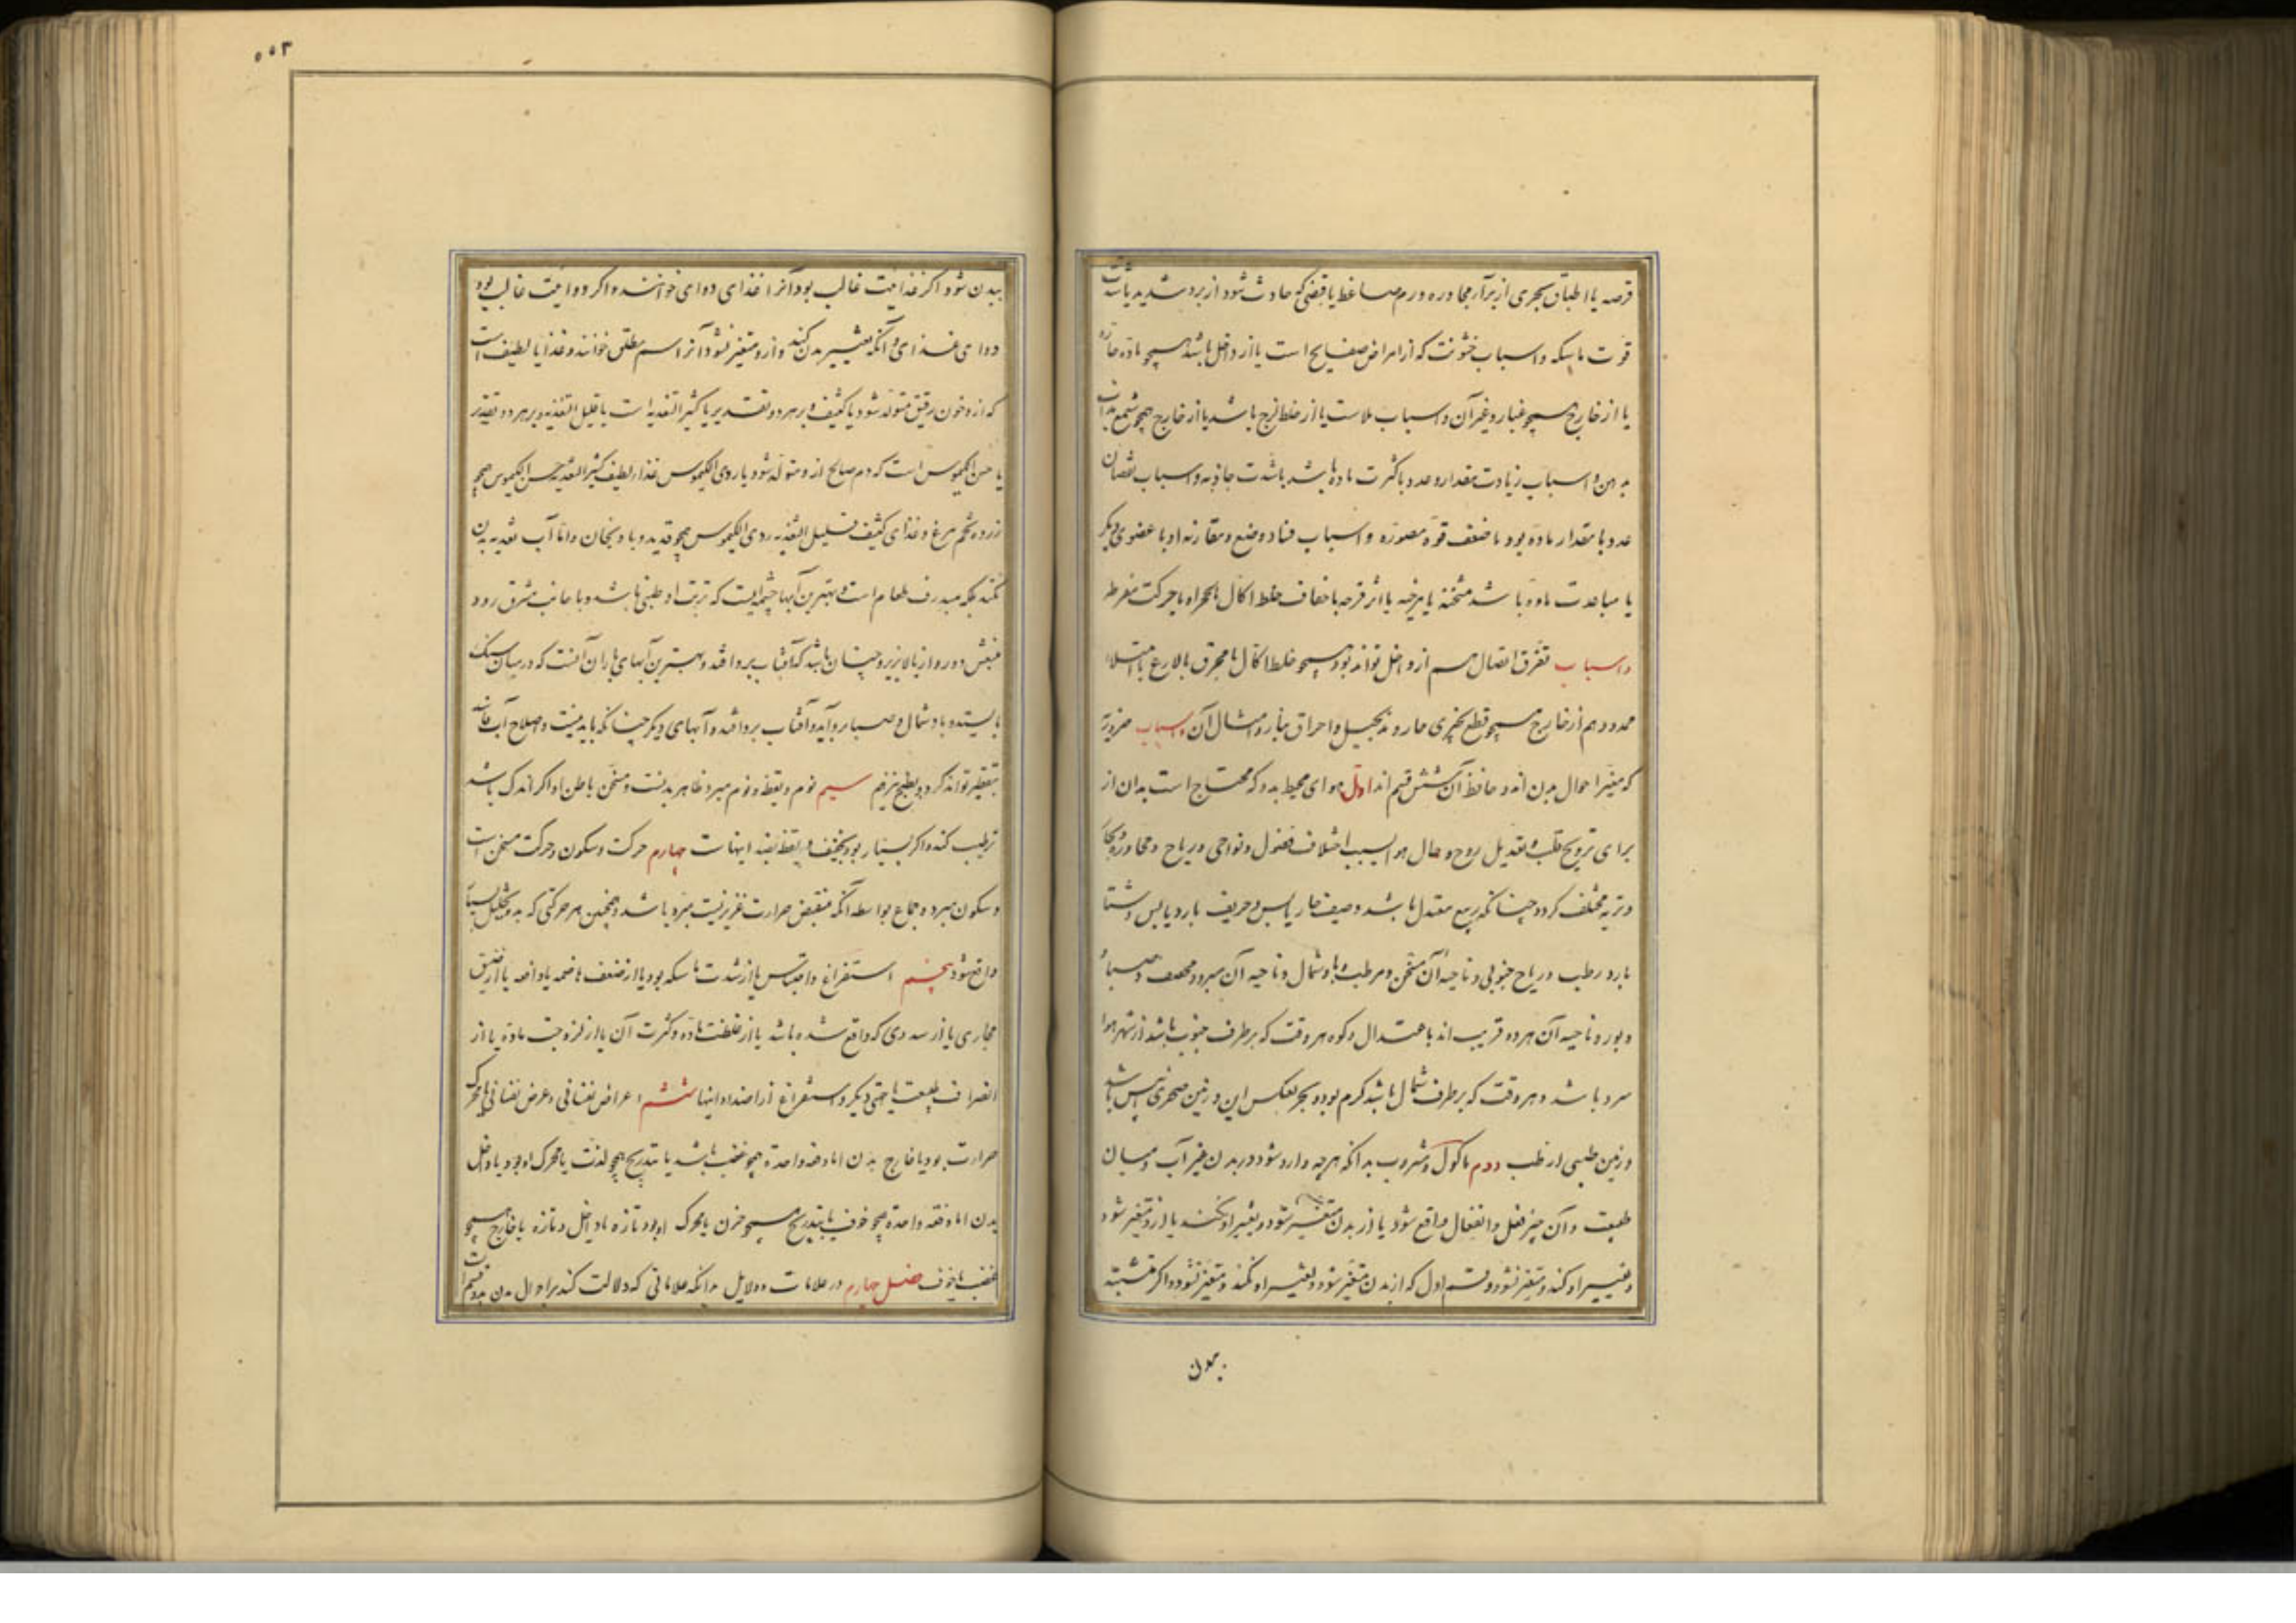 قرحه یا اطباق مجری از برآر مجاوره ورم ضاغط یا قبضی که حادث شود از برد شدید یا شدت
قوت ماسکه و اسباب خشونت که از امراض صفایح است یا از داخل باشد همچو ماده حاره
یا از خارج همچو غبار و غیر آن و اسباب ملاست یا از خلط لزج باشد یا از خارج همچو شمع مذاب
بدهن و اسباب زیادت مقدار و عدد یا کثرت ماده باشد یا شدت جاذبه و اسباب نقصان
عدد یا مقدار ماده بود یا ضعف قوة مصوره و اسباب فساد وضع و مقارنه او با عضوی دیگر
یا مباعدت ماده باشد مشنجه یا مرخیه یا اثر قرحه یا جفاف خلط اکال یا حرکت مفرطه
و اسباب تفرق اتصال هم از داخل تواند بود همچو خلط اکال یا محرق یا لاذع یا امتلا
ممدد و هم از خارج همچو قطع چیزی حار و مد بحبل و احراق بنار و امثال آن و اسباب ضروریه
که مغیر احوال بدن اند و حافظ آن شش قسم اند اول هوای محیط ببدن که محتاج است بدان از
برای ترویح قلب و تعدیل روح و حال هوا بسبب اختلاف فصول و نواحی و ریاح و مجاوره بحار
و تربه مختلف گردد چنانکه ربیع معتدل باشد و صیف حار یابس و خریف بارد یابس و شتا
بارد رطب و ریاح جنوبی و ناحیه آن مسخن و مرطب و باد شمال و ناحیه آن مبرد و مجفف و صبا
و دبور و ناحیه آن هر دو قریب اند باعتدال و کوه هر وقت که بر طرف جنوب باشد از شهر هوا
سرد باشد و هر وقت که بر طرف شمال باشد گرم بود و بحر بعکس این و زمین صخری یابس باشد
و زمین طینی ارطب دوم ماکول و مشروب بدانکه هرچه وارد شود در بدن غیر آب و میان
طبیعت و آن چیز فعل و انفعال واقع شود یا از بدن متغیر شود و تغییر او نکند یا ازو متغیر شود
و تغییر او کند و متغیر نشود و قسم اول که از بدن متغیر شود و تغییر او نکند و متغیر نشود و اگر متشبه
بدن
۵۵۳
ببدن شود اگر غذائیت غالب بود آنرا غذای دوای خوانند و اگر دوائیت غالب بود
دوای غذای و آنکه تغییر بدن کند و ازو متغیر نشود آنرا سم مطلق خوانند و غذا یا لطیف است
که ازو خون رقیق متولد شود یا کثیف و بر هر دو تقدیر یا کثیر التغذیه است یا قلیل التغذیه و بر هر دو تقدیر
یا حسن الکیموس است که دم صالح ازو متولد شود یا ردی الکیموس غذاء لطیف کثیر التغذیه حسن الکیموس همچو
زرده تخم مرغ و غذای کثیف قلیل التغذیه ردی الکیموس همچو قدید و بادنجان و اما آب تغذیه بدن
نکند بلکه مبدرق طعام است و بهترین آبها چشمه ایست که تربت او طینی باشد و با جانب مشرق رود
منبعش دور و از بالا بزیر و چنان باشد که آفتاب برو افتد و بهترین آبهای باران آنست که در میان سنگ
بایستد و باد شمال و صبا برو آید و آفتاب برو افتد و آبهای دیگر چنانکه باید نیست و اصلاح آب
بتقطیر تواند کرد و بطبخ نیز هم سیم نوم و یقظه و نوم مبرد ظاهر بدنست و مسخن باطن او اگر اندک باشد
ترطیب کند و اگر بسیار بود تجفیف و یقظه بضد اینهاست چهارم حرکت و سکون و حرکت مسخن است
و سکون مبرد و جماع بواسطه آنکه منقص حرارت غریزیست مبرد باشد و همچنین هر حرکتی که بدو تحلیل بسیار
واقع شود پنجم استفراغ و احتباس یا از شدت ماسکه بود یا از ضعف هاضمه یا دافعه یا از ضیق
مجاری یا از سددی که واقع شده باشد یا از غلظت ماده و کثرت آن یا از لزوجت ماده یا از
انصراف طبیعت بجهتی دیگر و استفراغ از اضداد اینها ششم اعراض نفسانی و عرض نفسانی یا محرک
حرارت بود یا خارج بدن اما دفعة واحدة همچو غضب باشد یا بتدریج همچو لذت یا محرک او بود با داخل
بدن اما دفعة واحدة همچو خوف یا بتدریج همچو حزن یا محرک او بود تارة با داخل و تارة با خارج همچو
غضب با خوف فصل چهارم در علامات و دلایل بدانکه علاماتی که دلالت کند بر احوال بدن بدو قسم است